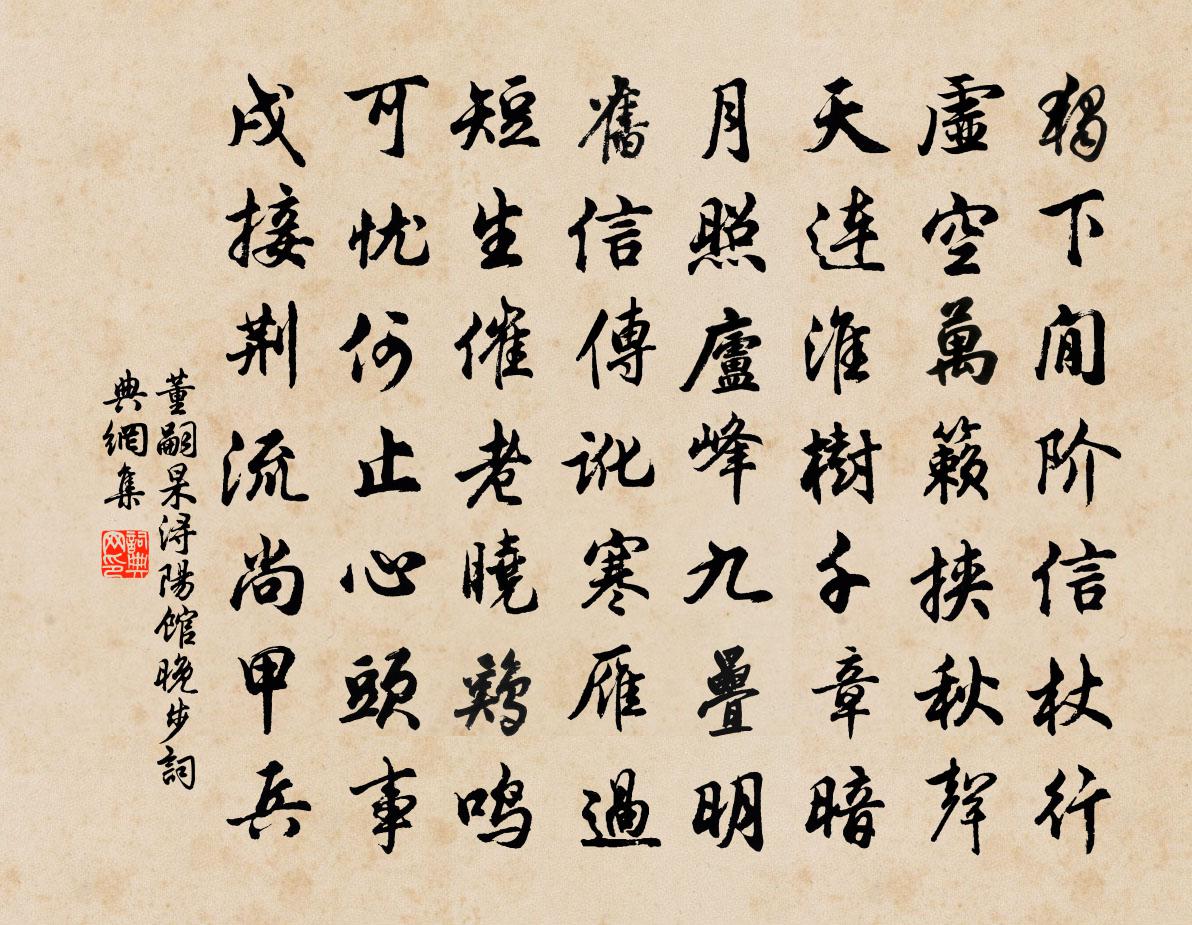 獨下閒阶信杖行
虛空萬籟挾秋聲
天連淮樹千章暗
月照廬峰九疊明
舊信傳訛寒雁過
短生催老曉鷄鳴
可忧何止心頭事
戍接荆流尚甲兵
董嗣杲浔陽馆晚步詞
典網集
詞典
网印